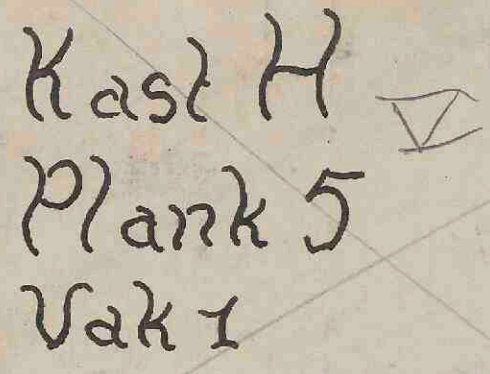 Kast H
V
Plank 5
Vak 1